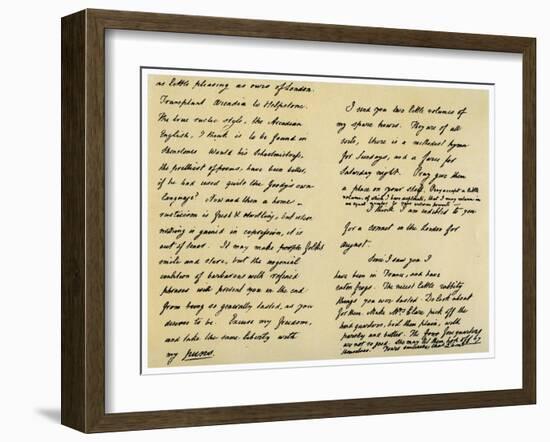 as little pleasing as ours of London.
Transplant Arcadia to Helpstone.
The true rustic style, the Arcadian
English, I think is to be found in
Shenstones. Would his Schoolmistress,
the prettiest of poems, have been better,
if he had used quite the Goody's own
language? Now and then a home
rusticism is fresh & startling, but where
nothing is gained in expression, it is
out of tenor. It may make people folks
smile and stare, but the ungenial
coalition of barbarous with refined
phrases will prevent you in the end
from being so generally tasted, as you
deserve to be. Excuse my freedom,
and take the same liberty with
my puns.
I send you two little volumes of
my spare hours. They are of all
sorts, there is a methodist hymn
for Sundays, and a farce for
Saturday night. Pray give them
a place on your shelf. Pray accept a little
volume, of which I have duplicate, that I may return in
an equal number to your welcome presents —
I think I am indebted to you
for a sonnet in the London for
August.
Since I saw you I
have been in France, and have
eaten frogs. The nicest little rabbity
things you ever tasted. Do look about
for them. Make Mrs Clare pick off the
hind quarters, boil them plain, with
parsley and butter. The fore quarters
are not so good. She may let them hop off by
themselves. Yours sincerely,